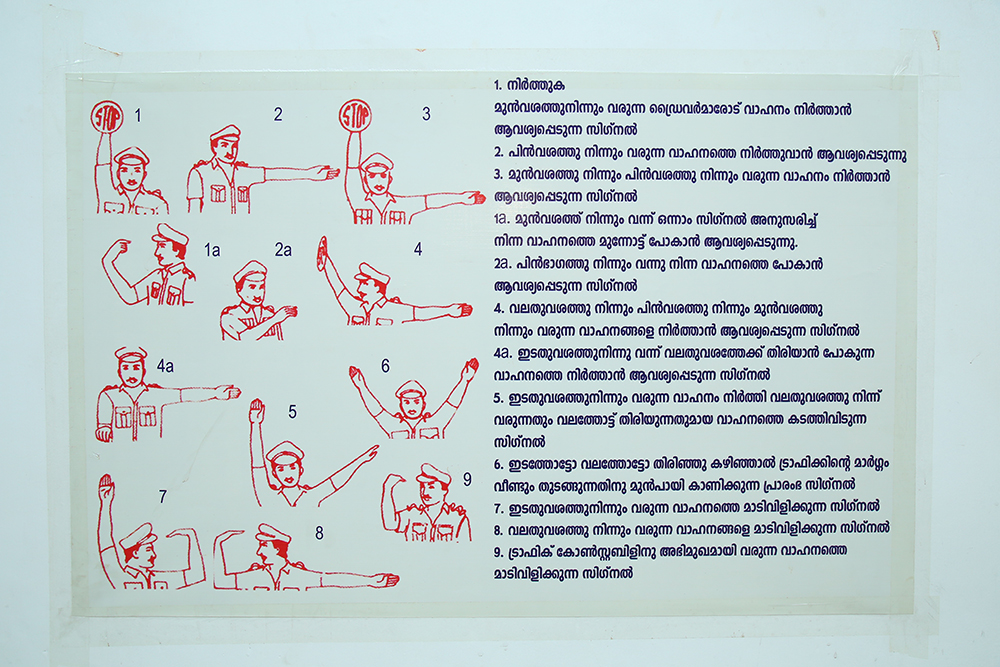 STOP 1
2
STOP 3
1a
2a
4
4a
6
5
9
7
8
1. നിർത്തുക
മുൻവശത്തുനിന്നും വരുന്ന ഡ്രൈവർമാരോട് വാഹനം നിർത്താൻ
ആവശ്യപ്പെടുന്ന സിഗ്നൽ
2. പിൻവശത്തു നിന്നും വരുന്ന വാഹനത്തെ നിർത്തുവാൻ ആവശ്യപ്പെടുന്നു
3. മുൻവശത്തു നിന്നും പിൻവശത്തു നിന്നും വരുന്ന വാഹനം നിർത്താൻ
ആവശ്യപ്പെടുന്ന സിഗ്നൽ
1a. മുൻവശത്ത് നിന്നും വന്ന് ഒന്നാം സിഗ്നൽ അനുസരിച്ച്
നിന്ന വാഹനത്തെ മുന്നോട്ട് പോകാൻ ആവശ്യപ്പെടുന്നു.
2a. പിൻഭാഗത്തു നിന്നും വന്നു നിന്ന വാഹനത്തെ പോകാൻ
ആവശ്യപ്പെടുന്ന സിഗ്നൽ
4. വലതുവശത്തു നിന്നും പിൻവശത്തു നിന്നും മുൻവശത്തു
നിന്നും വരുന്ന വാഹനങ്ങളെ നിർത്താൻ ആവശ്യപ്പെടുന്ന സിഗ്നൽ
4a. ഇടതുവശത്തുനിന്നു വന്ന് വലതുവശത്തേക്ക് തിരിയാൻ പോകുന്ന
വാഹനത്തെ നിർത്താൻ ആവശ്യപ്പെടുന്ന സിഗ്നൽ
5. ഇടതുവശത്തുനിന്നും വരുന്ന വാഹനം നിർത്തി വലതുവശത്തു നിന്ന്
വരുന്നതും വലത്തോട്ട് തിരിയുന്നതുമായ വാഹനത്തെ കടത്തിവിടുന്ന
സിഗ്നൽ
6. ഇടത്തോട്ടോ വലത്തോട്ടോ തിരിഞ്ഞു കഴിഞ്ഞാൽ ട്രാഫിക്കിന്റെ മാർഗ്ഗം
വീണ്ടും തുടങ്ങുന്നതിനു മുൻപായി കാണിക്കുന്ന പ്രാരംഭ സിഗ്നൽ
7. ഇടതുവശത്തുനിന്നും വരുന്ന വാഹനത്തെ മാടിവിളിക്കുന്ന സിഗ്നൽ
8. വലതുവശത്തു നിന്നും വരുന്ന വാഹനങ്ങളെ മാടിവിളിക്കുന്ന സിഗ്നൽ
9. ട്രാഫിക് കോൺസ്റ്റബിളിനു അഭിമുഖമായി വരുന്ന വാഹനത്തെ
മാടിവിളിക്കുന്ന സിഗ്നൽ